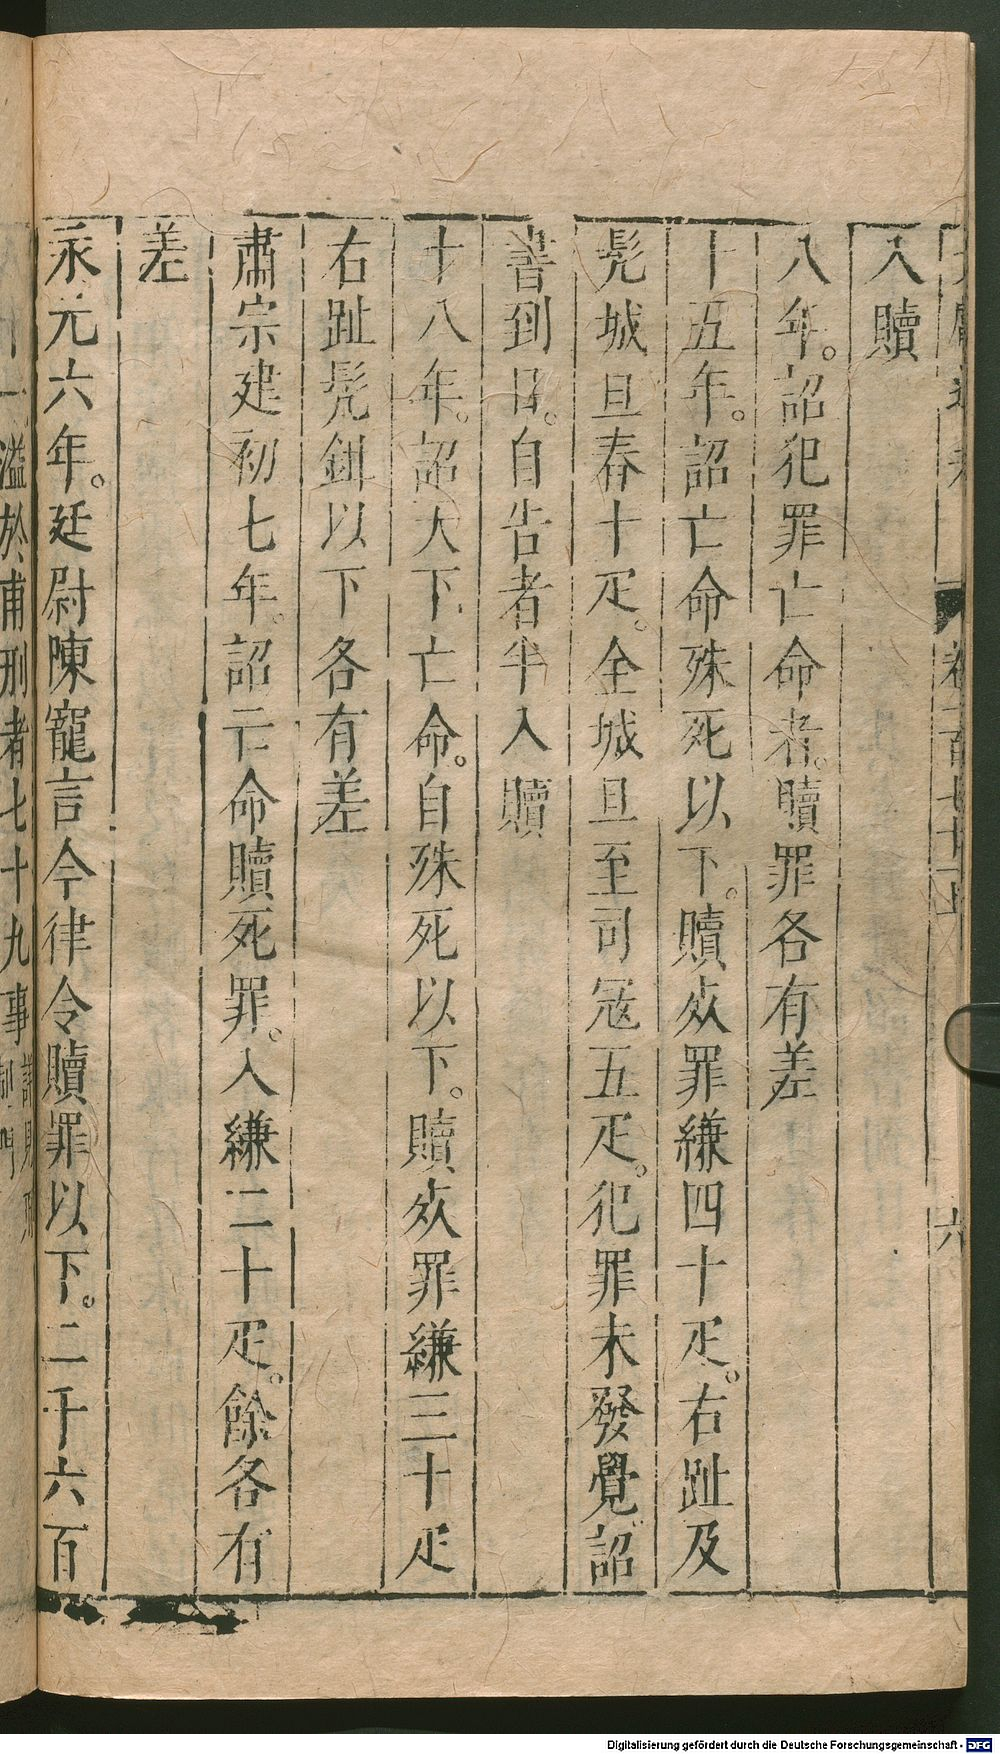 入贖
八年。詔犯罪亡命者。贖罪各有差
十五年。詔亡命殊死以下。贖死罪縑四十疋。右趾及
髡城旦舂十疋。全城旦至司冦五疋。犯罪未發覺詔
書到日。自告者半入贖
十八年。詔天下亡命。自殊死以下。贖死罪縑三十疋
右趾髡鉗以下各有差
肅宗建初七年。詔亡命贖死罪。入縑二十疋。餘各有
差
永元六年。廷尉陳寵言今律令贖罪以下。二千六百
溢於甫刑者七十九事
六
Digitalisierung gefördert durch die Deutsche Forschungsgemeinschaft - DFG